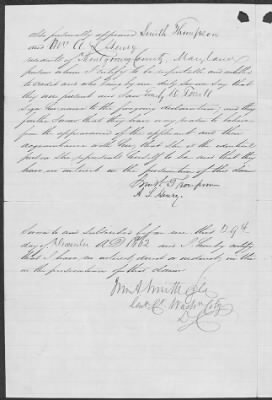 Also personally appeared Smith Thompson
and Wm A. L. Henry
residents of Montgomery County, Maryland
persons whom I certify to be respectable and entitled
to credit and who being by me duly sworn say that
they were present and saw
sign her name to the foregoing declaration; and they
further swear that they have every reason to believe
from the appearance of the applicant and their
acquaintance with her, that she is the identical
person she represents herself to be and that they
have no interest in the prosecution of this claim
Smith Thompson
A. L. Henry
Sworn to and subscribed before me this 29th
day of December AD 1862 and I hereby certify
that I have no interest direct or indirect, in the
in the prosecution of this claim
Wm A Smith Clk
Washn City
D.C.